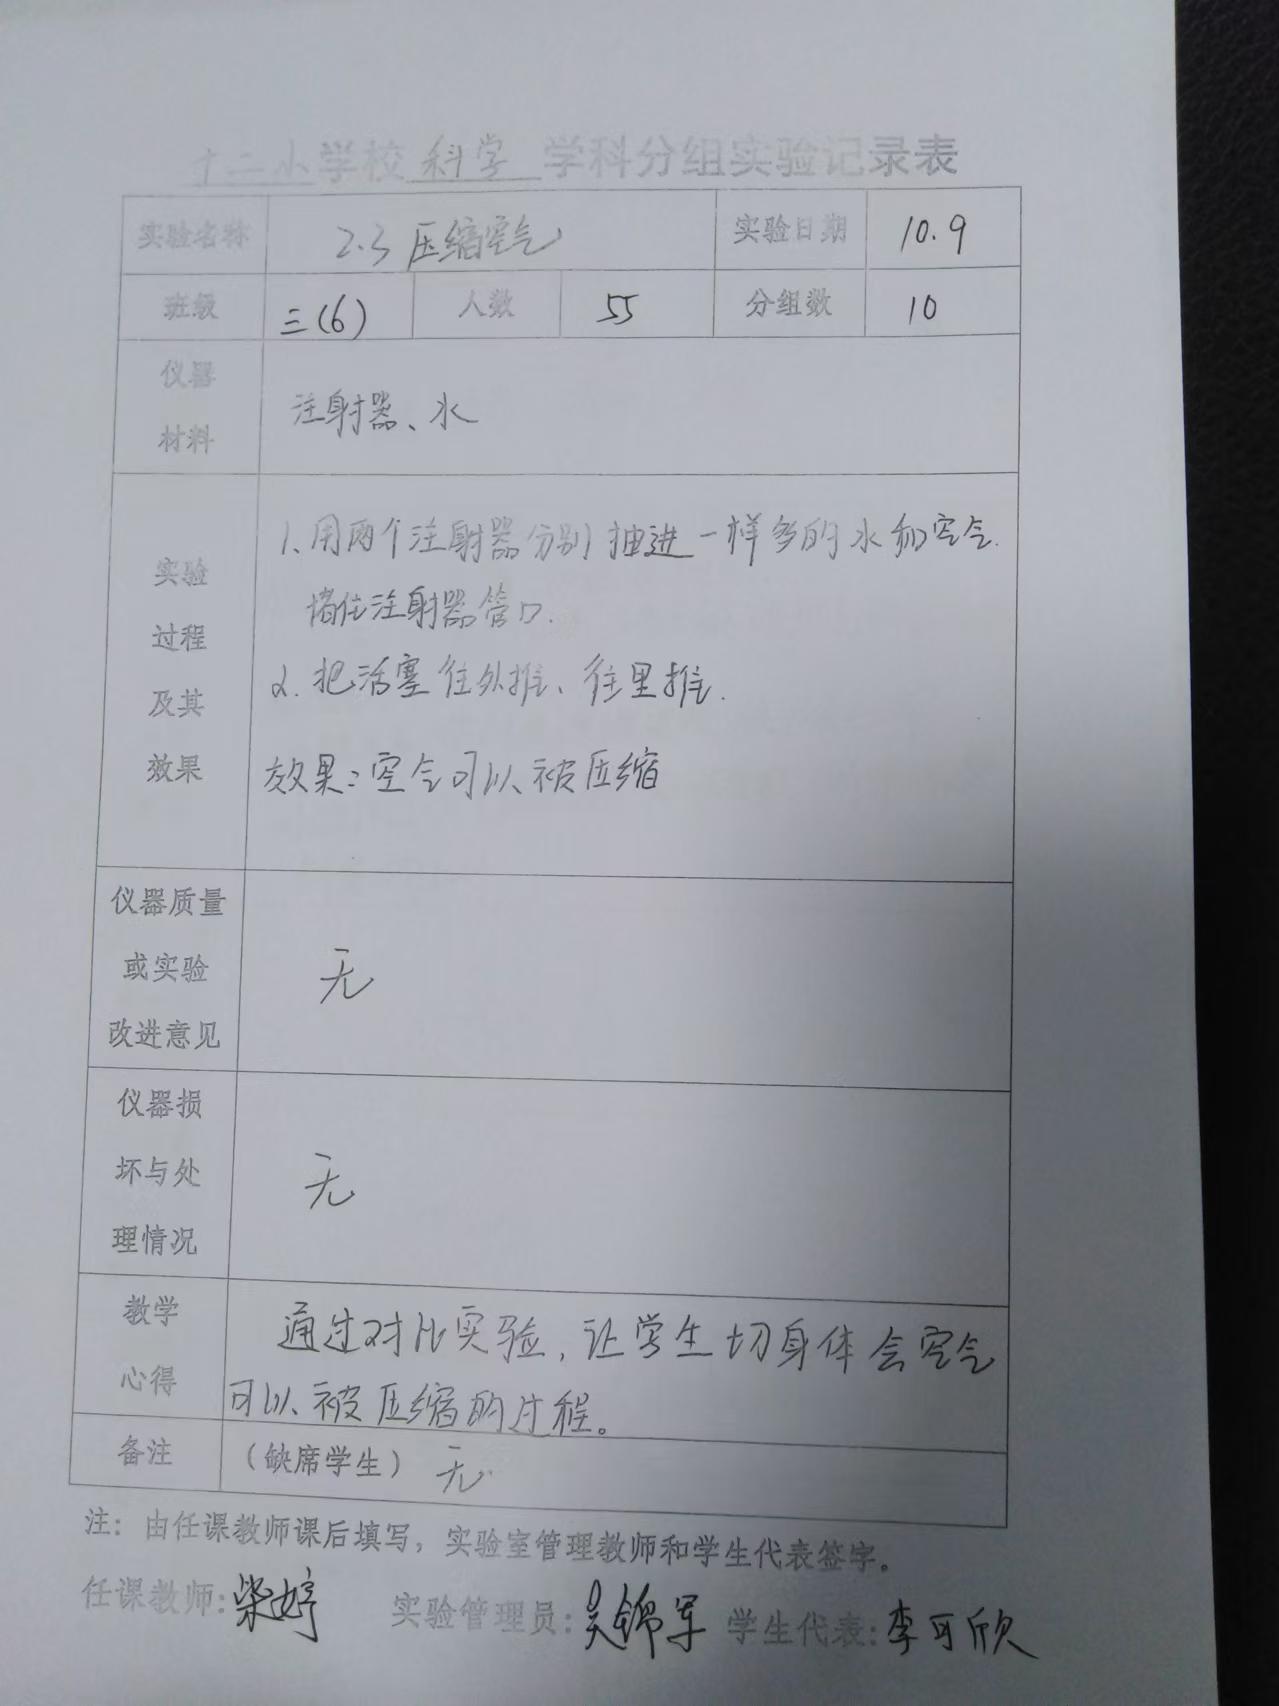 十二小学校 科学 学科分组实验记录表
实验名称 2.3 压缩空气 实验日期 10.9
班级 三(6) 人数 55 分组数 10
仪器
材料
注射器、水
实验
过程
及其
效果
1、用两个注射器分别抽进一样多的水和空气.
堵住注射器管口.
2. 把活塞往外推、往里推.
效果:空气可以被压缩
仪器质量
或实验
改进意见
无
仪器损
坏与处
理情况
无
教学
心得
通过对比实验,让学生切身体会空气
可以被压缩的过程。
备注 (缺席学生) 无.
注:由任课教师课后填写,实验室管理教师和学生代表签字。
任课教师:柴婷 实验管理员:吴锦军 学生代表:李可欣